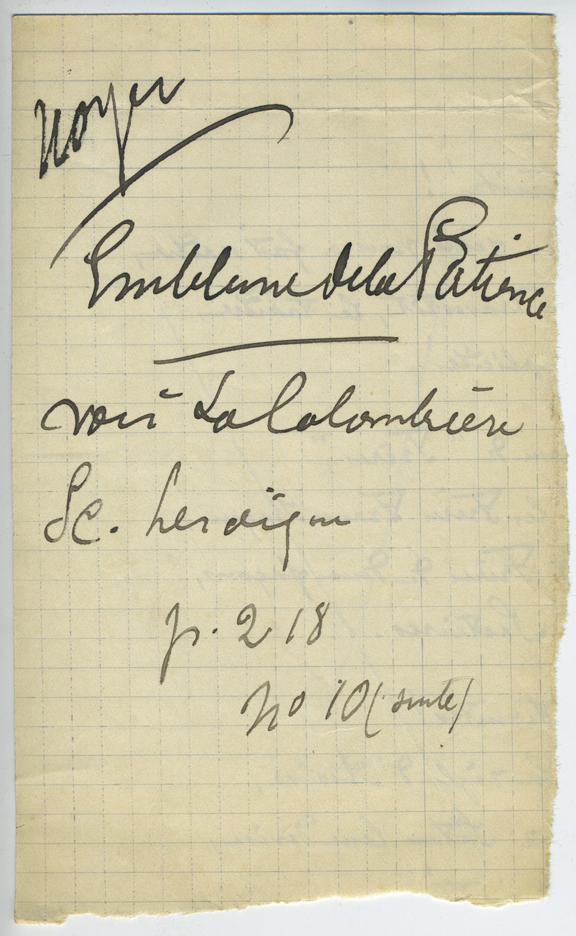 Noyer
Embleme de la Patience
voir La Colombière
Sc. heroique
p. 218
no 10 (suite)